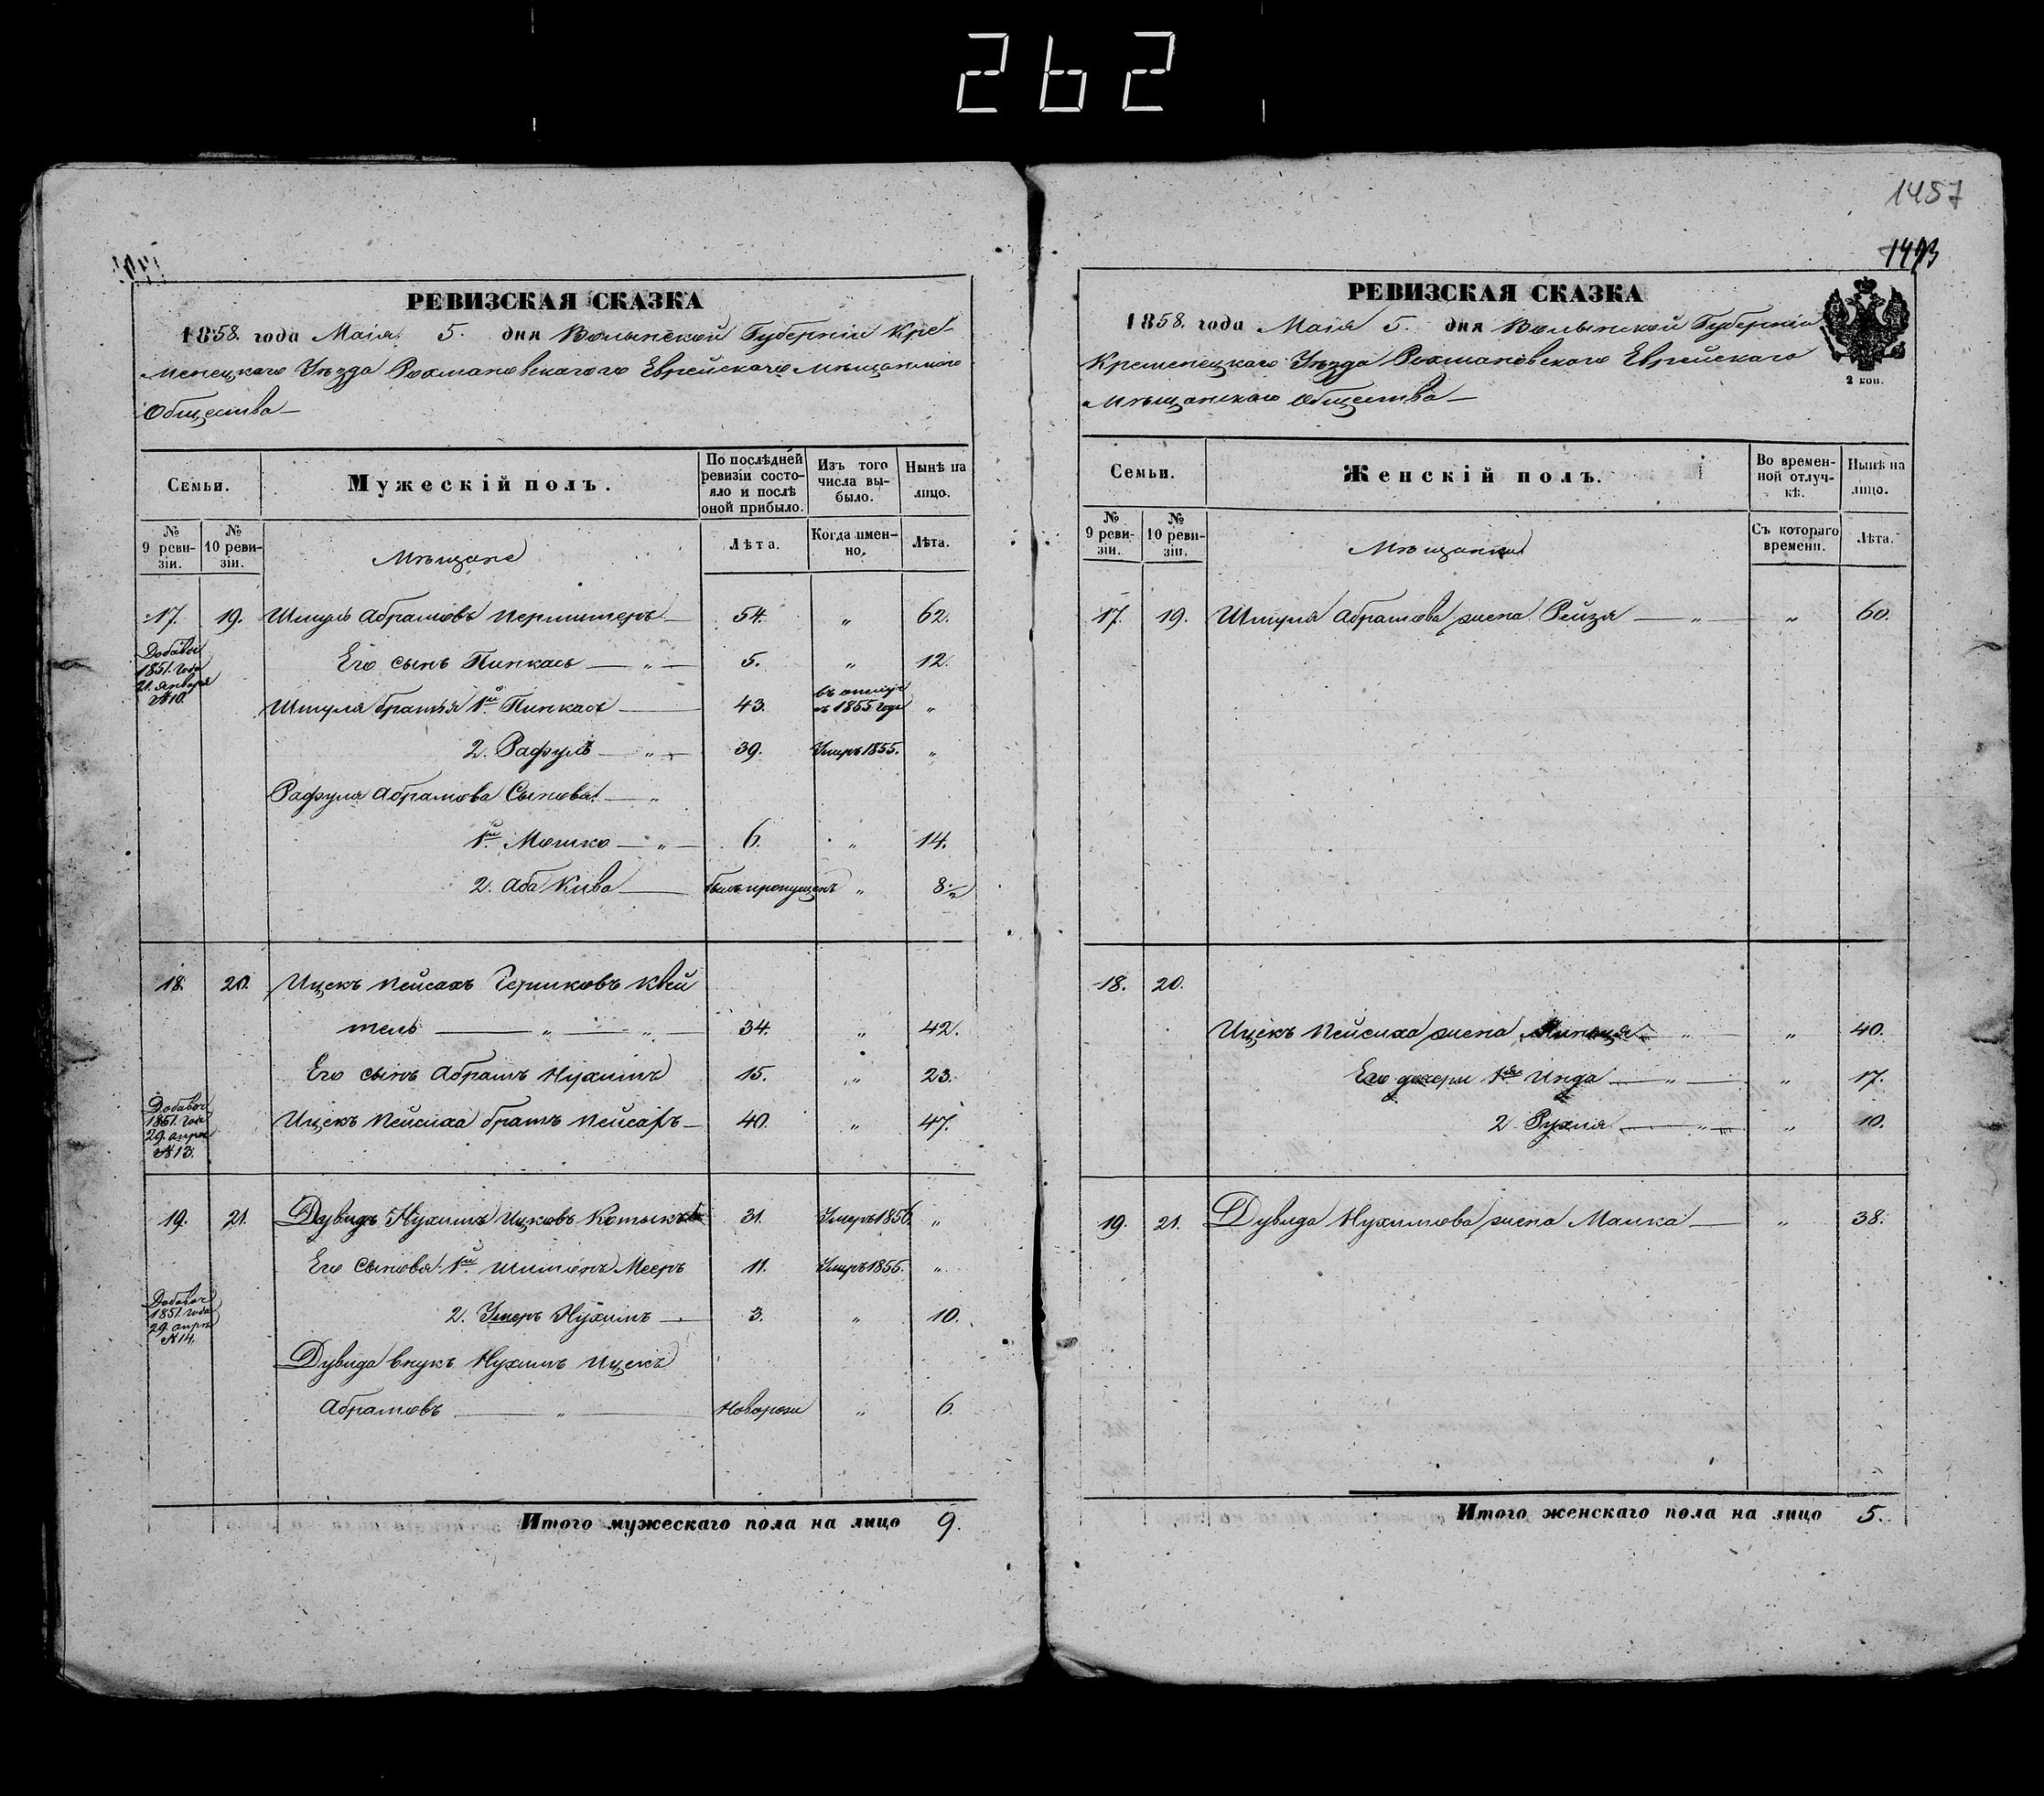 262
1457
1493
РЕВИЗСКАЯ СКАЗКА
1858. года Маія 5. дня Волынской Губерніи Кре-
менецкаго Уѣзда Рохмановскагого Еврейскаго Мѣщанскаго
Общества
Семьи.
Мужескій полъ.
По послѣдней ревизіи состояло и послѣ оной прибыло.
Изъ того числа выбыло.
Нынѣ на лицо.
№ 9 ревизіи.
№ 10 ревизіи.
Мѣщане
Лѣта.
Когда именно.
Лѣта.
17. 19. Шмуль Абрамовъ 54. „ 62.
Добавоч 1851. года 21. января №10.
Его сынъ Пинкасъ „ 5. „ 12.
Шмуля братья 1й Пинкасъ 43. 1855 года „
2. Рафулъ „ 39. Умеръ 1855. „
Рафуля Абрамова Сыновья „
1й Мошко „ 6. „ 14.
2. Аба Кива былъ пропущенъ „ 8½
18. 20. Ицекъ Пейсахъ Гершковъ Квей
тель „ „ 34. „ 42.
Его сынъ Абрамъ Нухимъ 15. „ 23.
Добавоч 1851. года 29. апрел №13.
Ицекъ Пейсиха братъ Пейсахъ 40. „ 47.
19. 21. Дувидъ Нухимъ Ицковъ Котыкъ 31. Умеръ 1856. „
Его сыновья 1й Шимонъ Мееръ 11. Умеръ 1855. „
Добавоч 1851. года 29. апрел №14.
2. Умеръ Нухимъ 3. „ 10.
Дувида внукъ Нухимъ Ицекъ
Абрамовъ „ Новорож „ 6.
Итого мужескаго пола на лицо 9.
РЕВИЗСКАЯ СКАЗКА
1858. года Маія 5. дня Волынской Губерніи
Кременецкаго Уѣзда Рохмановскаго Еврейскаго
Мѣщанскаго Общества
2 коп.
Семьи.
Женскій полъ.
Во временной отлучкѣ.
Нынѣ на лицо.
№ 9 ревизіи.
№ 10 ревизіи.
Мѣщанки
Съ котораго времени.
Лѣта.
17. 19. Шмуля Абрамова жена Рейзя „ „ 60.
18. 20.
Ицекъ Пейсиха жена „ „ 40.
Его дочери 1я Инда „ „ 17.
2 Рухля „ „ 10.
19. 21. Дувида Нухимова жена Малка „ 38.
Итого женскаго пола на лицо 5.